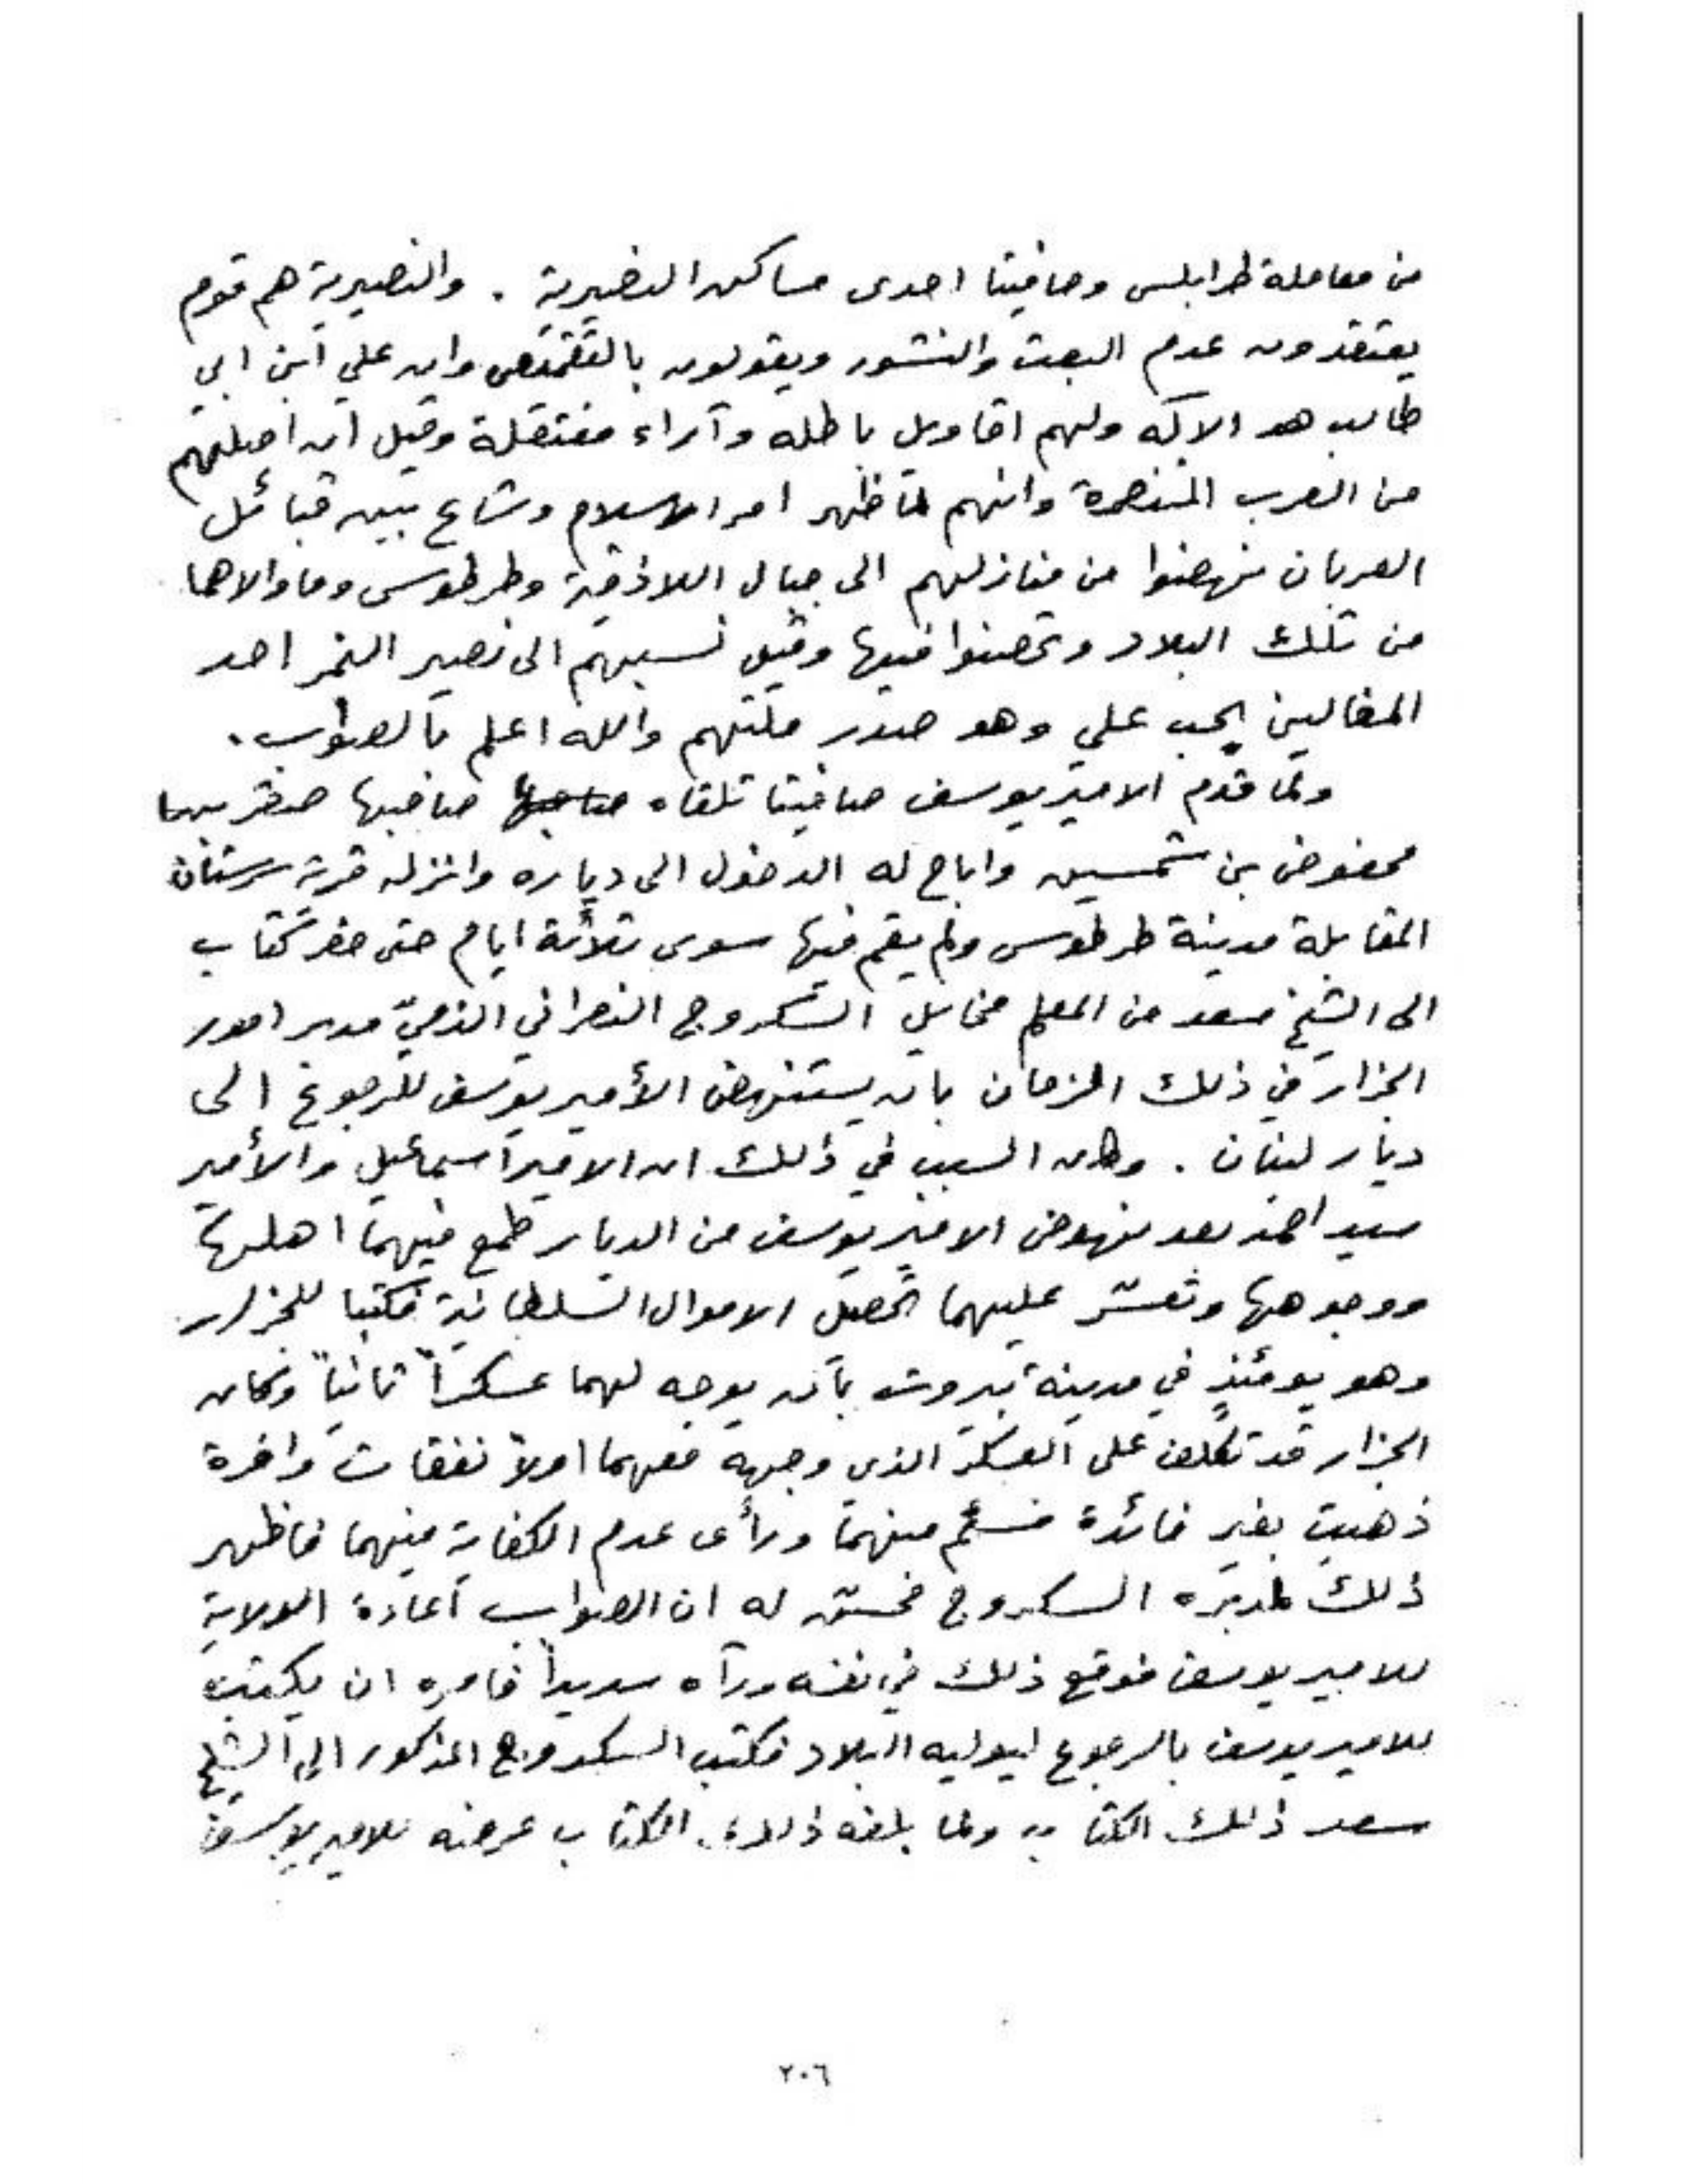 من معاملة طرابلس وصافيتا احدى مساكن النصيرية . والنصيرية هم قوم
يعتقدون عدم البعث والنشور ويقولون بالتقمّص وان علي ابن ابي
طالب هو الاله ولهم اقاويل باطله وآراء مفتعلة وقيل ان اصلهم
من العرب المتنصرة وانهم لما ظهر امر الاسلام وشاع بين قبائل
العربان نهضوا من منازلهم الى جبال اللاذقية وطرطوس وما والاهما
من تلك البلاد وتحصنوا فيها وقيل نسبهم الى نصير النمر احد
المغالين بحب علي وهو صدر ملتهم والله اعلم بالصواب .
ولما قدم الامير يوسف صافيتا تلقاه صاحبها صقر بن
محفوض بن شمسين واباح له الدخول الى دياره وانزله قرية
المقابلة مدينة طرطوس ولم يقم فيها سوى ثلاثة ايام حتى حضر كتاب
الى الشيخ سعد من المعلم مخايل السكروج النصراني الذميّ مدبر امور
الجزار في ذلك الزمان بان يستنهض الأمير يوسف للرجوع إلى
ديار لبنان . وكان السبب في ذلك ان الامير اسماعيل والأمير
سيد احمد بعد نهوض الامير يوسف من الديار طمع فيهما اهلها
ووجوهها وتعسّر عليهما تحصيل الاموال السلطانية فكتبا للجزار
وهو يومئذٍ في مدينة بيروت بان يوجه لهما عسكراً ثانياً وكان
الجزار قد تكلف على العسكر الذي وجهه معهما اولاً نفقات وافرة
ذهبت بغير فائدة فسئم منهما ورأى عدم الكفاية منهما فاظهر
ذلك لمدبّره السكروج فحسّن له ان الصواب اعادة الولاية
للامير يوسف فوقع ذلك في نفسه ورآه سديداً فامره ان يكتب
للامير يوسف بالرجوع ليوليه البلاد فكتب السكروج المذكور الى الشيخ
سعد ذلك الكتاب ولما بلغه ذلك الكتاب عرضه للامير يوسف
٢٠٦